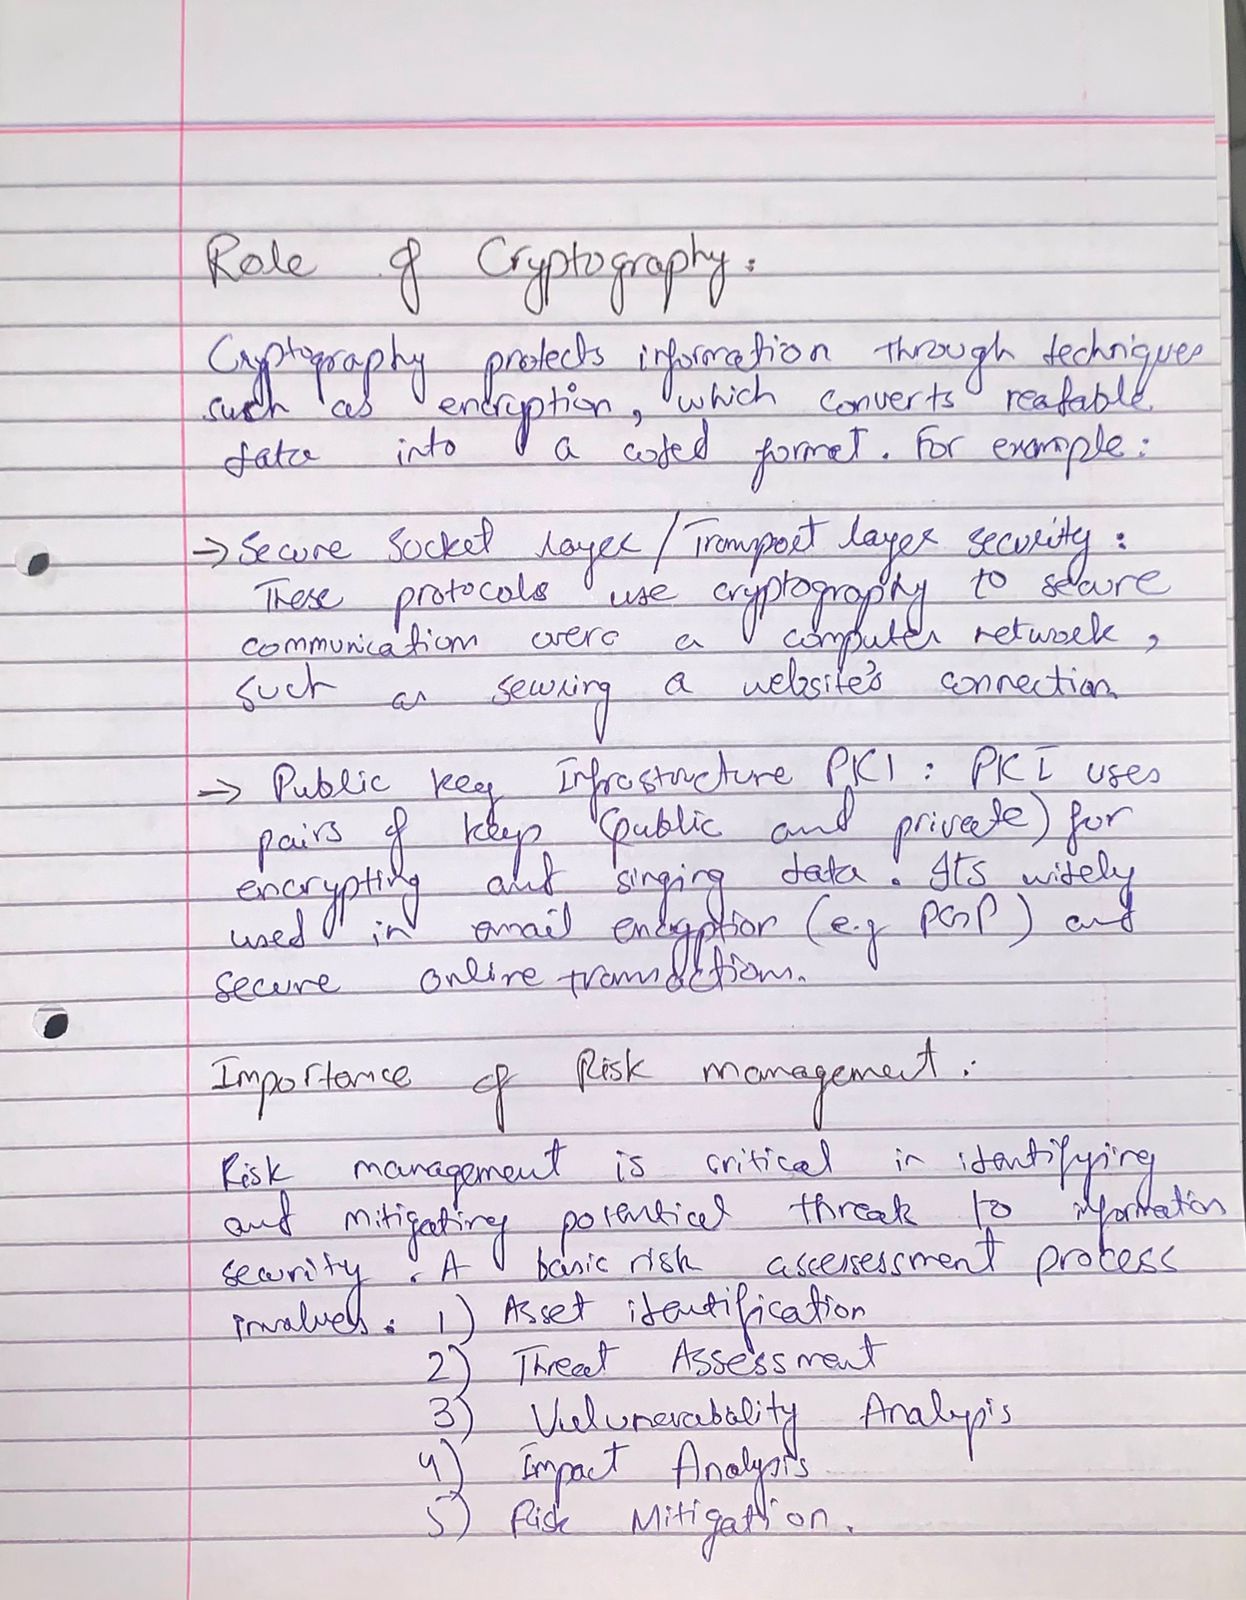 Role of Cryptography:
Cryptography protects information through techniques
such as encryption, which converts readable
data into a coded format. For example:
→ Secure Socket layer/Transport layer security:
These protocols use cryptography to secure
communication over a computer network,
such as securing a website's connection
→ Public key Infrastructure PKI: PKI uses
pairs of keys (public and private) for
encrypting and singing data. Its widely
used in email encryption (e.g PGP) and
secure online transactions.
Importance of Risk management:
Risk management is critical in identifying
and mitigating potential threats to information
security. A basic risk assessessment process
involves: 1) Asset identification
2) Threat Assessment
3) Vulunerabality Analysis
4) Impact Analysis
5) Risk Mitigation.